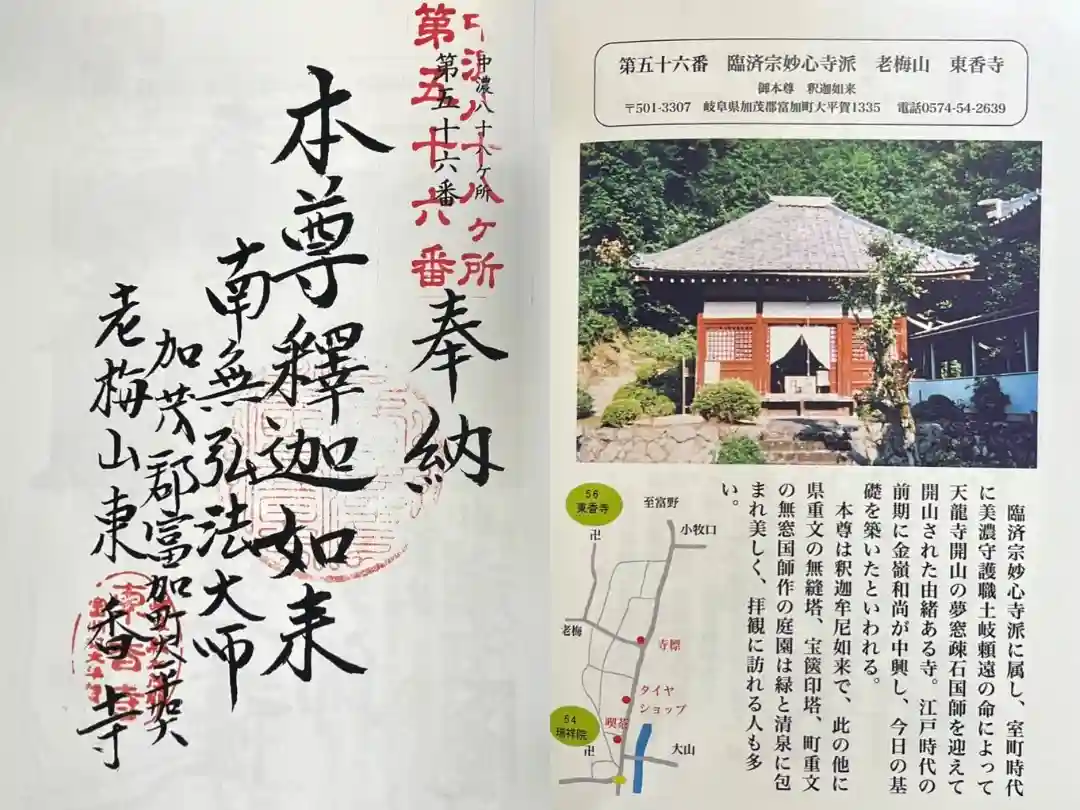 中濃八十八ヶ所
第五十六番
中濃八十八ヶ所
第五十六番
奉納
本尊釋迦如来
南無弘法大師
加茂郡富加町大平賀
老梅山東香寺
第五十六番 臨済宗妙心寺派 老梅山 東香寺
御本尊 釈迦如来
〒501-3307 岐阜県加茂郡富加町大平賀1335 電話0574-54-2639
臨済宗妙心寺派に属し、室町時代
に美濃守護職土岐頼遠の命によって
天龍寺開山の夢窓疎石国師を迎えて
開山された由緒ある寺。江戸時代の
前期に金嶺和尚が中興し、今日の基
礎を築いたといわれる。
本尊は釈迦牟尼如来で、此の他に
県重文の無縫塔、宝篋印塔、町重文
の無窓国師作の庭園は緑と清泉に包
まれ美しく、拝観に訪れる人も多
い。
56
東香寺
至富野
小牧口
卍
老梅
寺標
タイヤ
ショップ
喫茶
54
瑞祥院
卍
大山